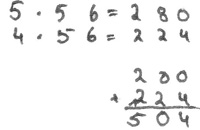 5 · 56 = 280
4 · 56 = 224
280
+ 224
504